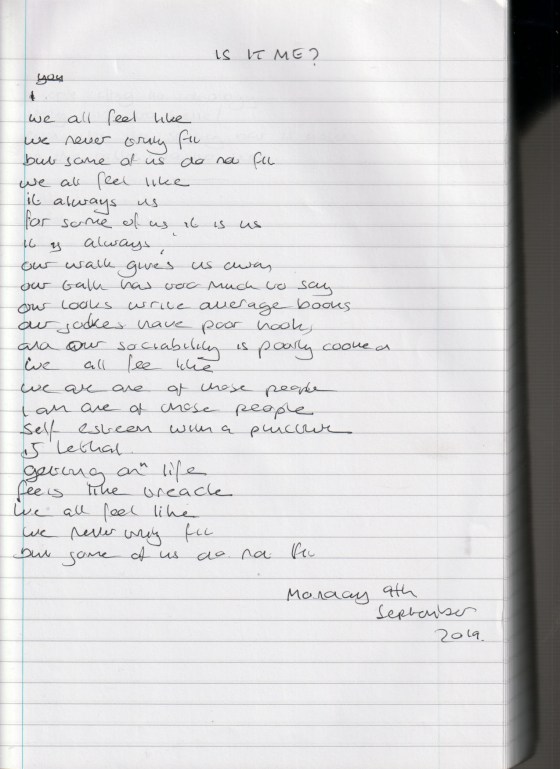 IS IT ME?
you
I
we all feel like
we never truly fit
but some of us do not fit
we all feel like
it always us
for some of us it is us
it is always,
our walk gives us away
our talk has too much to say
our looks write average books
our jokes have poor hooks
and our sociability is poorly cooked
we all feel like
we are one of those people
I am one of those people
Self esteem with a puncture
is lethal.
getting on in life
feels like treacle
we all feel like
we never truly fit
but some of us do not fit
Monday 9th
September
2019.